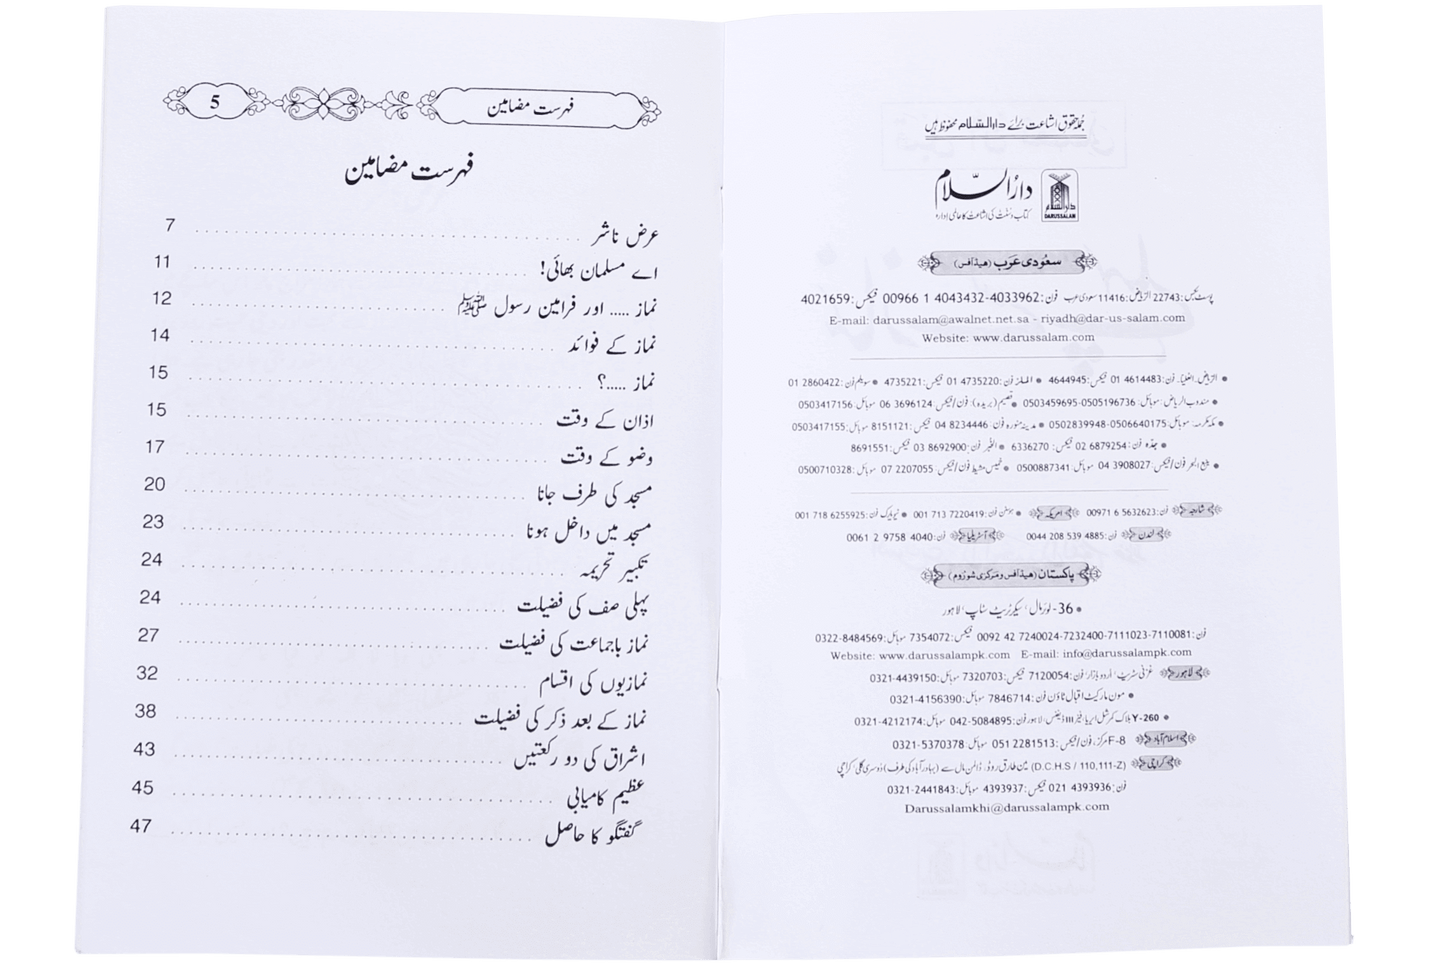 جملہ حقوق اشاعت برائے دارالسّلام محفوظ ہیں
دارُالسّلام
کتاب و سُنّت کی اشاعت کا عالمی ادارہ
دارالسلام
DARUSSALAM
سعُودی عَرَب (ھیڈآفس)
پوسٹ بکس: 22743 الریاض: 11416 سعودی عرب فون: 00966 1 4043432-4033962 فیکس: 4021659
E-mail: darussalam@awalnet.net.sa - riyadh@dar-us-salam.com
Website: www.darussalam.com
● الریاض۔ العلیا۔ فون: 01 4614483 فیکس: 4644945 ● الملز فون: 01 4735220 فیکس: 4735221 ● سویلم فون: 01 2860422
● مندوب الریاض: موبائل: 0503459695-0505196736 ● قصیم (بریدہ): فون/فیکس: 06 3696124 موبائل: 0503417156
● مکہ مکرمہ: موبائل: 0502839948-0506640175 ● مدینہ منورہ فون: 04 8234446 فیکس: 8151121 موبائل: 0503417155
● جدّہ فون: 02 6879254 فیکس: 6336270 ● الخبر فون: 03 8692900 فیکس: 8691551
● ینبع البحر فون/فیکس: 04 3908027 موبائل: 0500887341 ● خمیس مشیط فون/فیکس: 07 2207055 موبائل: 0500710328
شارجہ فون: 00971 6 5632623 امریکہ ● ہوسٹن فون: 001 713 7220419 ● نیویارک فون: 001 718 6255925
لندن فون: 0044 208 539 4885 آسٹریلیا فون: 0061 2 9758 4040
پاکستان (ھیڈآفس ومَرکزی شورُوم)
● 36- لوئر مال، سیکرٹریٹ سٹاپ، لاہور
فون: 0092 42 7240024-7232400-7111023-7110081 فیکس: 7354072 موبائل: 0322-8484569
Website: www.darussalampk.com E-mail: info@darussalampk.com
لاہور غزنی سٹریٹ، اُردو بازار فون: 7120054 فیکس: 7320703 موبائل: 0321-4439150
● مون مارکیٹ اقبال ٹاؤن فون: 7846714 موبائل: 0321-4156390
● Y-260 بلاک کمرشل ایریا، فیز III ڈیفنس، لاہور فون: 042-5084895 موبائل: 0321-4212174
اسلام آباد F-8 مرکز، فون/فیکس: 051 2281513 موبائل: 0321-5370378
کراچی (D.C.H.S / 110,111-Z) مین طارق روڈ، ڈالمن مال سے (بہادرآباد کی طرف) دُوسری گلی کراچی
فون: 021 4393936 فیکس: 4393937 موبائل: 0321-2441843
Darussalamkhi@darussalampk.com
فہرست مضامین 5
فہرست مضامین
عرض ناشر 7
اے مسلمان بھائی! 11
نماز ..... اور فرامین رسول ﷺ 12
نماز کے فوائد 14
نماز .....؟ 15
اذان کے وقت 15
وضو کے وقت 17
مسجد کی طرف جانا 20
مسجد میں داخل ہونا 23
تکبیر تحریمہ 24
پہلی صف کی فضیلت 24
نماز باجماعت کی فضیلت 27
نمازیوں کی اقسام 32
نماز کے بعد ذکر کی فضیلت 38
اشراق کی دو رکعتیں 43
عظیم کامیابی 45
گفتگو کا حاصل 47